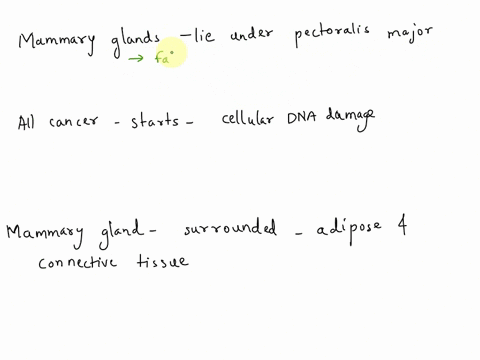 Mammary glands - lie under pectoralis major
→ fa
All cancer - starts - cellular DNA damage
Mammary gland - surrounded - adipose &
connective tissue